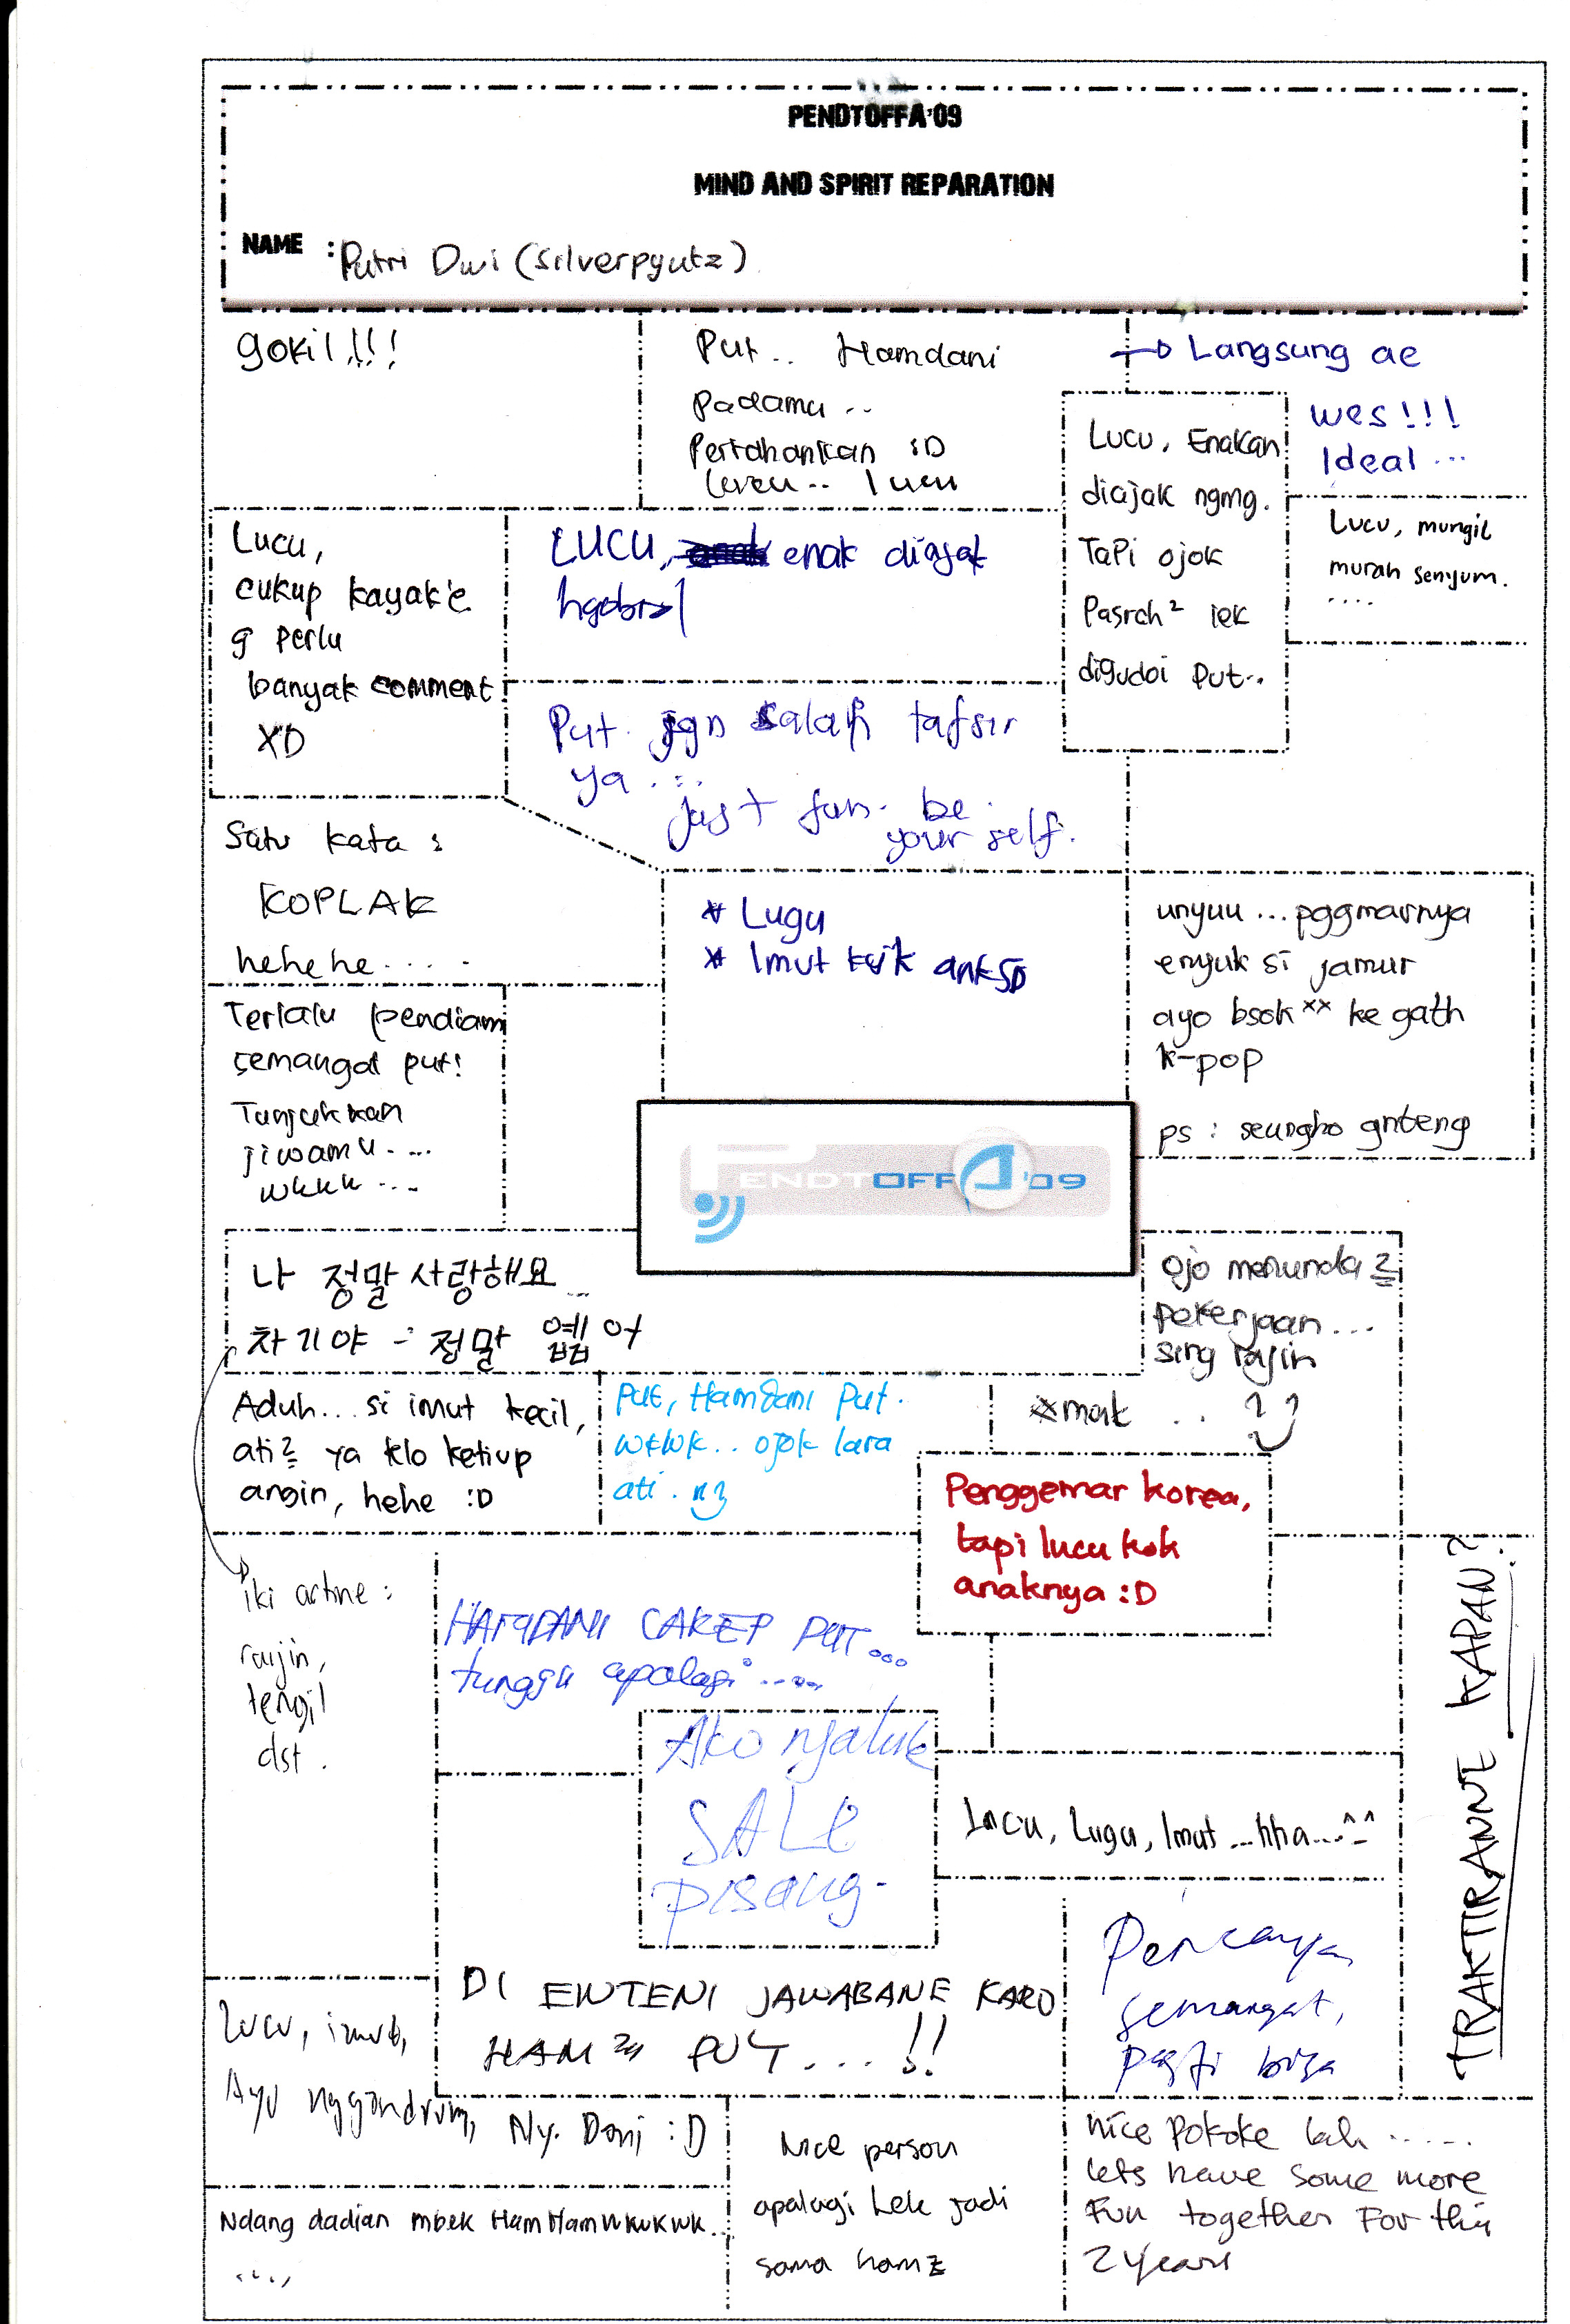 PENDTOFFA'09
MIND AND SPIRIT REPARATION
NAME : Putri Dwi (silverpyutz)
gokil!!!
Put.. Hamdani
padamu ..
Pertahankan :D
lucu
→ Langsung ae
wes!!!
Ideal ...
Lucu, Enakan
diajak ngmg.
Tapi ojok
Pasrah² lek
digudoi Put..
Lucu, mungil
murah senyum.
....
Lucu,
cukup kayak'e
g perlu
banyak comment
XD
LUCU, enak diajak
ngobrol
Put jgn salah tafsir
ya ...
just fun. be
your self.
Satu kata :
KOPLAK
hehehe.....
* Lugu
* Imut kyk ank SD
unyuu ... pggmarnya
enyuk si jamur
ayo bsok ** ke gath
k-pop
ps : seungho gnteng
Terlalu pendiam
semangat put!
Tunjukkan
jiwamu....
wkkk ....
PENDTOFFA'09
나 정말 사랑해요...
차기야 - 정말 옙어
ojo menunda 2
pekerjaan...
sing rajin
Aduh... si imut kecil,
ati2 ya klo ketiup
angin, hehe :D
Put, Hamdani Put.
wkwk.. ojok lara
ati.
Penggemar korea,
tapi lucu kok
anaknya :D
iki artine :
rajin,
tengil
dst.
HAMDANI CAKEP PUT...
tunggu apalagi.....
TRAKTIRANNE KAPAN?
Ako njaluk
SALE
pisang.
Lucu, Lugu, Imut ...hha...^_^
DI ENTENI JAWABANE KARO
HAM2 PUT...!!
Percaya,
semangat,
pasti bisa
Lucu, imut,
Ayo nggandrung, Ny. Dani :D
Nice person
apalagi lek jadi
sama hamz
nice pokoke lah .....
lets have some more
Fun together For this
2 years
Ndang dadian mbek HamHam wkwkwk..
....